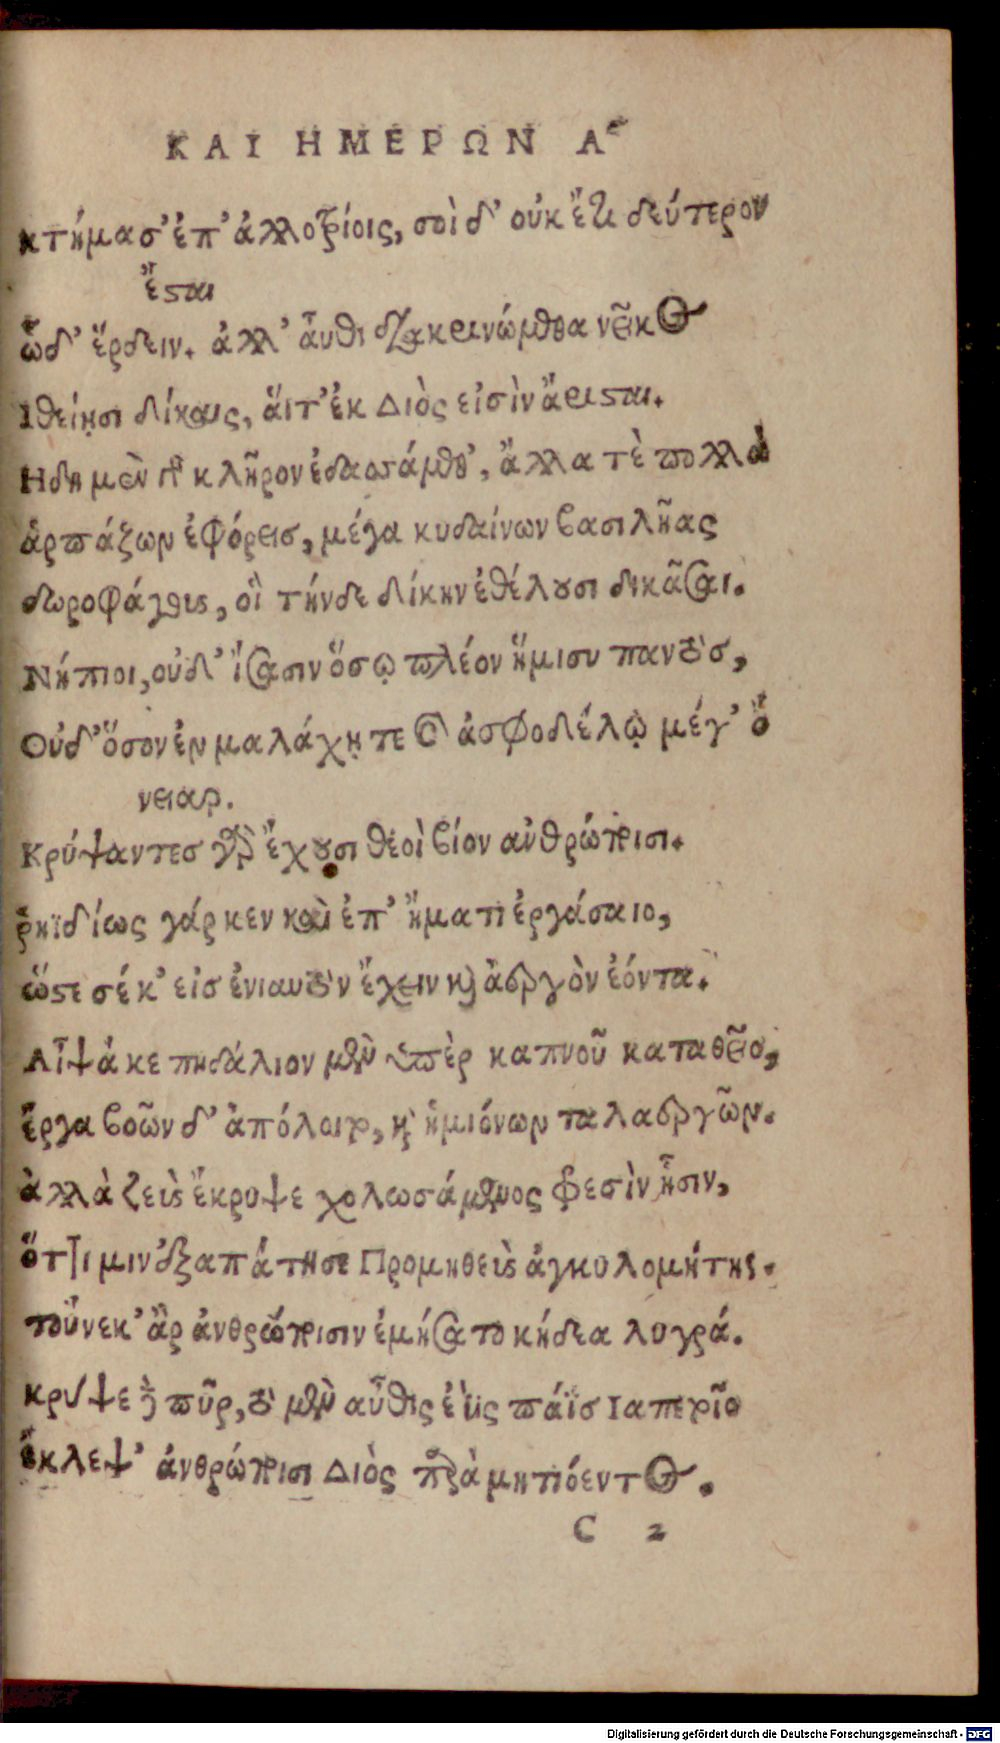 ΚΑΙ ΗΜΕΡΩΝ Α
κτήμασ' ἐπ' ἀλλοτρίοις, σοὶ δ' οὐκ ἔτι δεύτερον
ἔσται
ὧδ' ἔρδειν. ἀλλ' αὖθι διακρινώμεθα νεῖκος
Ιθείῃσι δίκαις, ἅιτ' ἐκ Διὸς εἰσὶν ἄρισται.
Ηδη μὲν γὰρ κλῆρον ἐδασσάμεθ', ἄλλα τὲ πολλὰ
ἁρπάζων ἐφόρεισ, μέγα κυδαίνων βασιλῆας
δωροφάγους, οἳ τήνδε δίκην ἐθέλουσι δικᾶσαι.
Νήπιοι, οὐδ' ἴσασιν ὅσῳ πλέον ἥμισυ παντὸσ,
Οὐδ' ὅσον ἐν μαλάχῃ τε καὶ ἀσφοδέλῳ μέγ' ὄ
νειαρ.
Κρύψαντεσ γὰρ ἔχουσι θεοὶ βίον ἀνθρώποισι.
ῥηϊδίως γάρ κεν καὶ ἐπ' ἤματι ἐργάσαιο,
ὥστε σέ κ' εἰσ ἐνιαυτὸν ἔχειν καὶ ἀεργὸν ἐόντα.
Αἶψά κε πηδάλιον μὲν ὑπὲρ καπνοῦ καταθεῖο,
ἔργα βοῶν δ' ἀπόλοιτο, καὶ ἡμιόνων ταλαεργῶν.
ἀλλὰ ζεὺς ἔκρυψε χολωσάμενος φρεσὶν ᾗσιν,
ὅττι μιν ἐξαπάτησε Προμηθεὺς ἀγκυλομήτης.
τοὔνεκ' ἂρ ἀνθρώποισιν ἐμήσατο κήδεα λυγρά.
κρύψε δὲ πῦρ, τὸ μὲν αὖθις ἐὺς πάϊσ Ιαπετοῖο
ἔκλεψ' ἀνθρώποισι Διὸς παρὰ μητιόεντος.
C 2
Digitalisierung gefördert durch die Deutsche Forschungsgemeinschaft - DFG